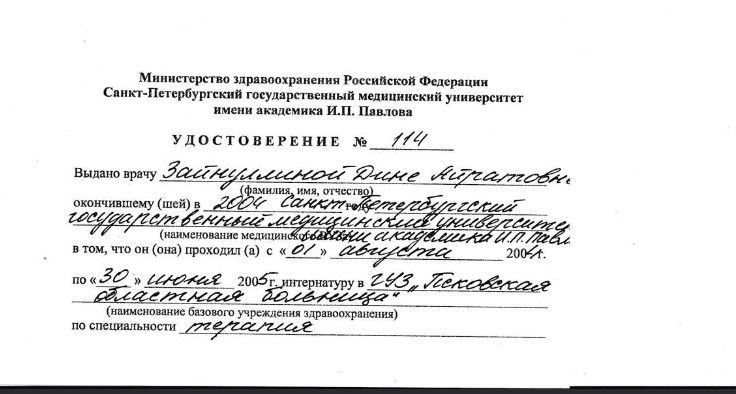 Министерство здравоохранения Российской Федерации
Санкт-Петербургский государственный медицинский университет
имени академика И.П. Павлова
УДОСТОВЕРЕНИЕ № 114
Выдано врачу Зайнуллиной Дине Айратовн
(фамилия, имя, отчество)
окончившему (шей) в 2004 Санкт-Петербургский
государственный медицинский университе
(наименование медицинской имени академика И.П. Павл
в том, что он (она) проходил (а) с «01» августа 2004г.
по «30» июня 2005г. интернатуру в ГУЗ „Псковская
областная больница“
(наименование базового учреждения здравоохранения)
по специальности терапия